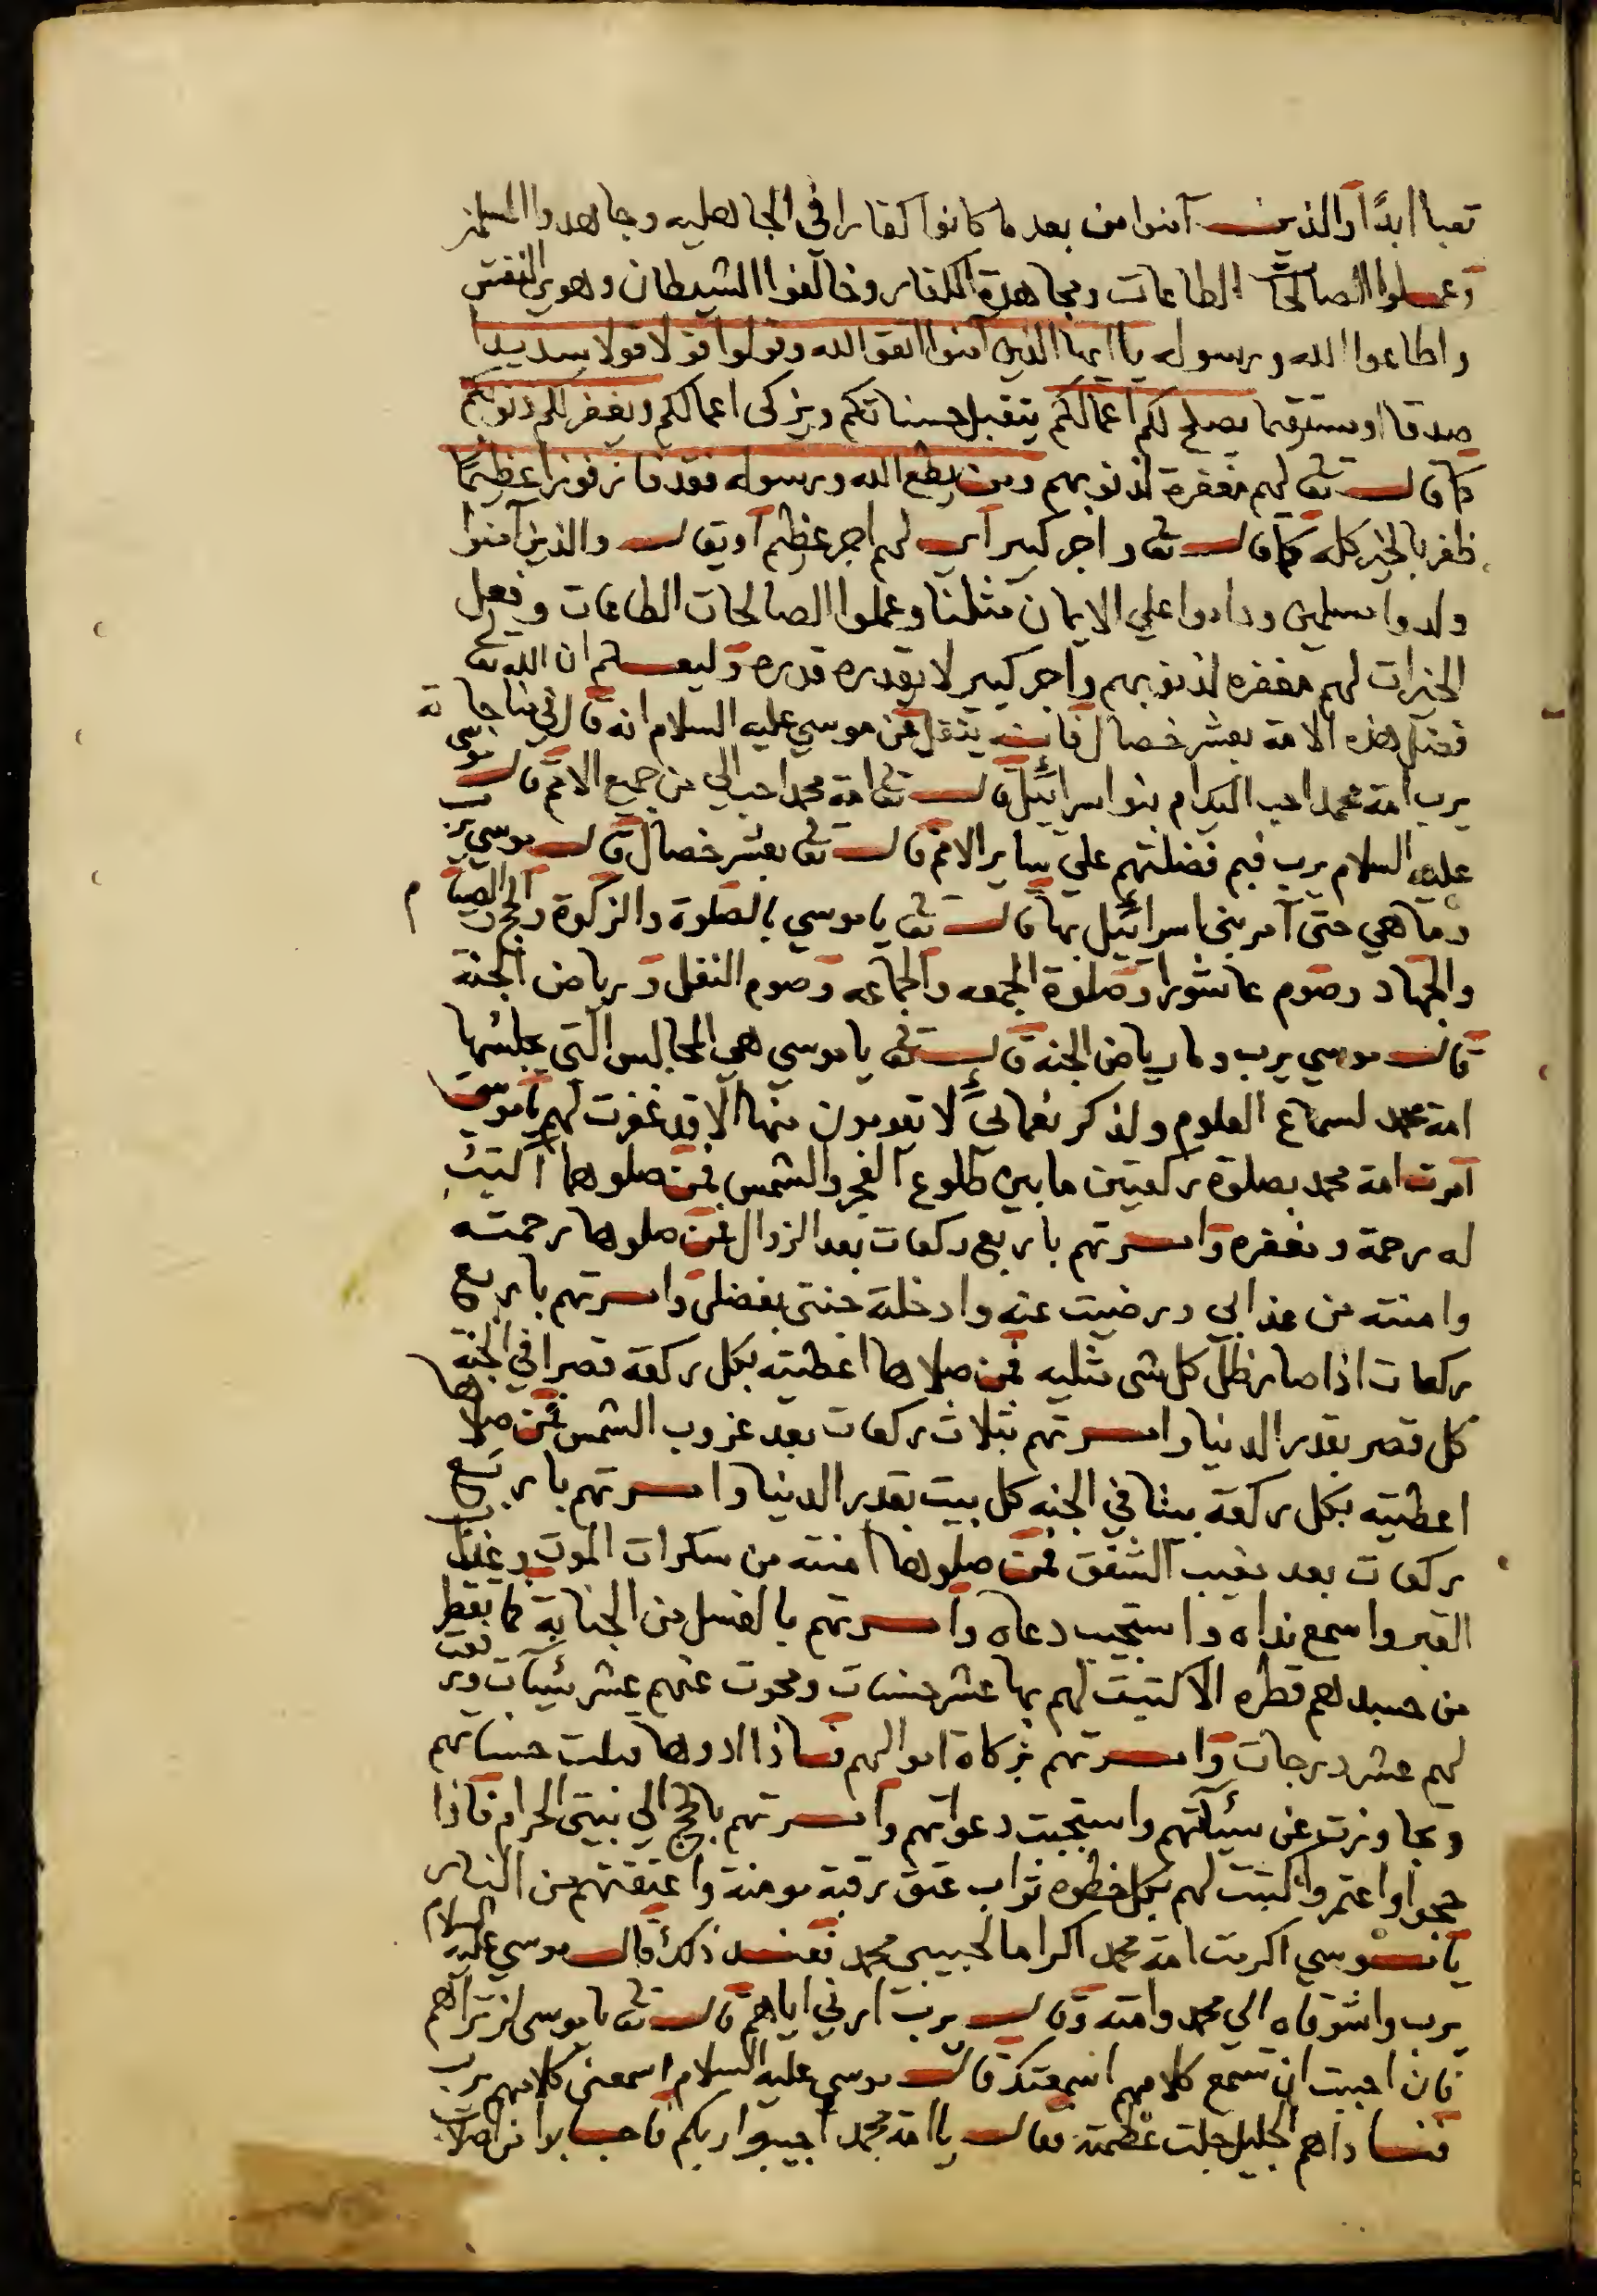 تعبا ابدًا والذين آمنوا من بعد ما كانوا كفارا في الجاهليه وجاهدوا المسلمين
وعملوا الصالحات الطاعات ومجاهدة الكفار وخالفوا الشيطان وهوي النفس
واطاعوا الله ورسوله يا ايها الذين آمنوا اتقو الله وقولوا قولا قولا سديدا
صدقا او مستقيما يصلح لكم اعمالكم يتقبل حسناتكم ويزكى اعمالكم ويغفر لكم ذنوبكم
كما قال تع لهم مغفرة لذنوبهم ومن يطع الله ورسوله فقد فاز فوزا عظيمًا
ظفر بالخير كله كما قال تع واجر كبير اي لهم اجر عظيم او يقال والذين آمنوا
ولدوا مسلمين وداموا علي الايمان مثلنا وعملوا الصالحات الطاعات وفعل
الخيرات لهم مغفره لذنوبهم واجر كبير لا يقدره قدره وليعلم ان الله تع
فضل هذه الامة بعشر خصال فانه ينقل عن موسي عليه السلام انه قال في مناجاته
يرب امة محمد احب اليك ام بنو اسرائيل قال تع امة محمد احب الي من جميع الامم قال موسي
عليه السلام يرب فبم فضلتهم علي ساير الامم قال تع بعشر خصال قال موسي يرب
وما هي حتى آمر بني اسرائيل بها قال تع يا موسي بالصلوة والزكوة والحج والصيام
والجهاد وصوم عاشورا وصلوة الجمعه والجماعه وصوم النفل ورياض الجنة
قال موسي يرب وما رياض الجنة قال تع يا موسي هي المجالس التي يجلسها
امة محمد لسماع العلوم ولذكر نعمائي لا يقومون منها الا قد غفرت لهم يا موسي
امرت امة محمد بصلوة ركعتين ما بين طلوع الفجر والشمس فمن صلوهما اكتبت
له رحمة ومغفره وامرتهم باربع ركعات بعد الزوال فمن صلوها رحمته
وامنته من عذابي ورضيت عنه وادخلته جنتي بفضلى وامرتهم باربع
ركعات اذا صار ظل كل شى مثليه فمن صلاها اعطيته بكل ركعة قصرا في الجنة
كل قصر بقدر الدنيا وامرتهم بثلاث ركعات بعد غروب الشمس فمن صلاها
اعطيته بكل ركعة بيتا في الجنه كل بيت بقدر الدنيا وامرتهم باربع
ركعات بعد مغيب الشفق فمن صلوها امنته من سكرات الموت وعذاب
القبر واسمع نداه واستجيب دعاه وامرتهم بالغسل من الجنابة فما يقطر
من جسدهم قطره الا كتبت لهم بها عشر حسنات ومحوت عنهم عشر سيئات ورفعت
لهم عشر درجات وامرتهم بزكاة اموالهم فاذا ادوها قبلت حسناتهم
وتجاوزت عن سيئآتهم واستجبت دعواتهم وامرتهم بالحج الي بيتى الحرام فاذا
حجوا واعتمروا كتبت لهم بكل خطوه ثواب عتق رقبة مومنة واعتقتهم من النار
يا موسي اكرمت امة محمد اكراما لحبيبي محمد فعند ذلك قال موسي عليه السلام
يرب واشوقاه الي محمد وامته وقال يرب ارني اياهم قال تع يا موسى لن تراهم
فان احببت ان تسمع كلامهم اسمعتك قال موسي عليه السلام اسمعنى كلامهم يرب
فناداهم الجليل جلت عظمته فقال يا امة محمد اجيبوا ربكم فاجابوا من اصلاب